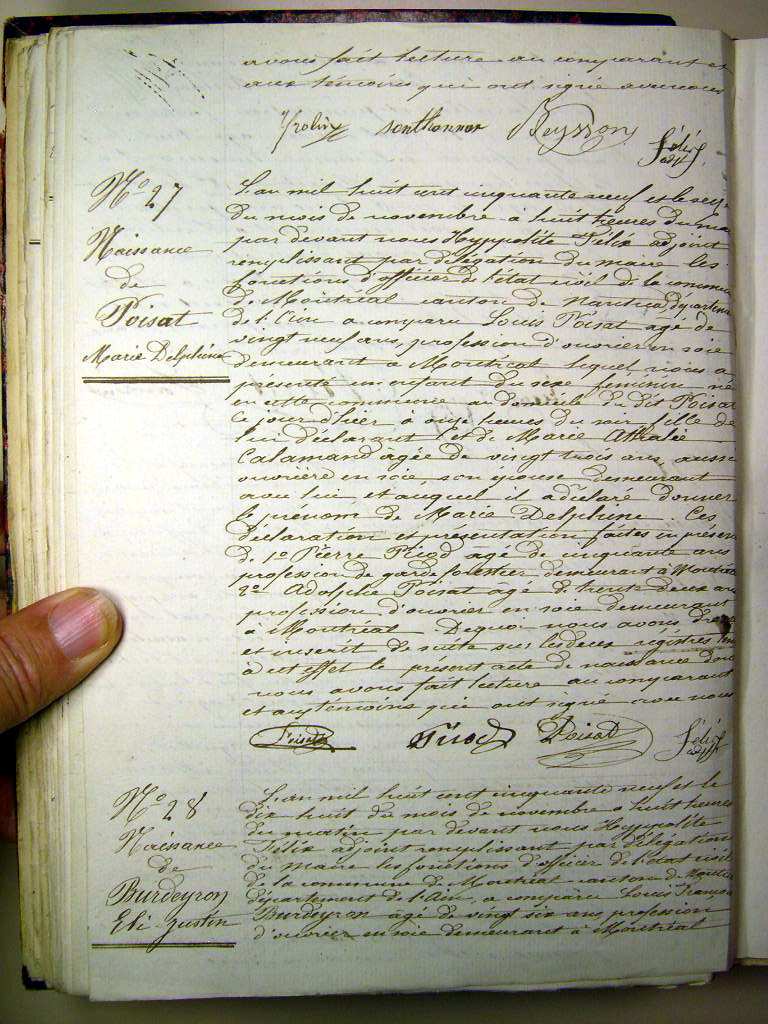 avons fait lecture au comparant et
aux témoins qui ont signé avec nous
Frolin Sonthonnax Beysson Félix adjt
N° 27
Naissance
de
Poisat
Marie Delphine
L'an mil huit cent cinquante neuf et le
du mois de novembre à huit heures du
par devant nous Hyppolite Félix adjoint
remplissant par délégation du maire les
fonctions d'officier de l'état civil de la commune
de Montréal canton de Nantua, département
de l'Ain a comparu Louis Poisat agé de
vingt neuf ans, profession d'ouvrier en soie
demeurant à Montréal lequel nous a
présenté un enfant du sexe féminin né
en cette commune au domicile du dit Poisat
le jour d'hier à onze heures du soir fille de
lui déclarant et de Marie Athalie
Calamand agée de vingt trois ans, aussi
ouvrière en soie, son épouse demeurant
avec lui, et auquel il a déclaré donner
le prénom de Marie Delphine Ces
déclaration et présentation faites en présence
de 1° Pierre Picod âgé de cinquante ans
profession de garde forestier demeurant à Montréal
2° Adolphe Poisat âgé de trente deux ans
profession d'ouvrier en soie demeurant
à Montréal. De quoi nous avons dressé
et inscrit de suite sur les deux régistres tenus
à cet effet le présent acte de naissance dont
nous avons fait lecture au comparant
et aux temoins qui ont signé avec nous
Poisat Picod Poisat Félix adjt
N° 28
Naissance
de
Burdeyron
Eli-Justin
L'an mil huit cent cinquante neuf et le
dix huit du mois de novembre à huit heures
du matin par devant nous Hyppolite
Félix adjoint remplissant par délégation
du maire les fonctions d'officier de l'état civil
de la commune de Montréal canton de Nantua
département de l'Ain, a comparu Louis François
Burdeyron âgé de vingt six ans, profession
d'ouvrier en soie demeurant à Montréal